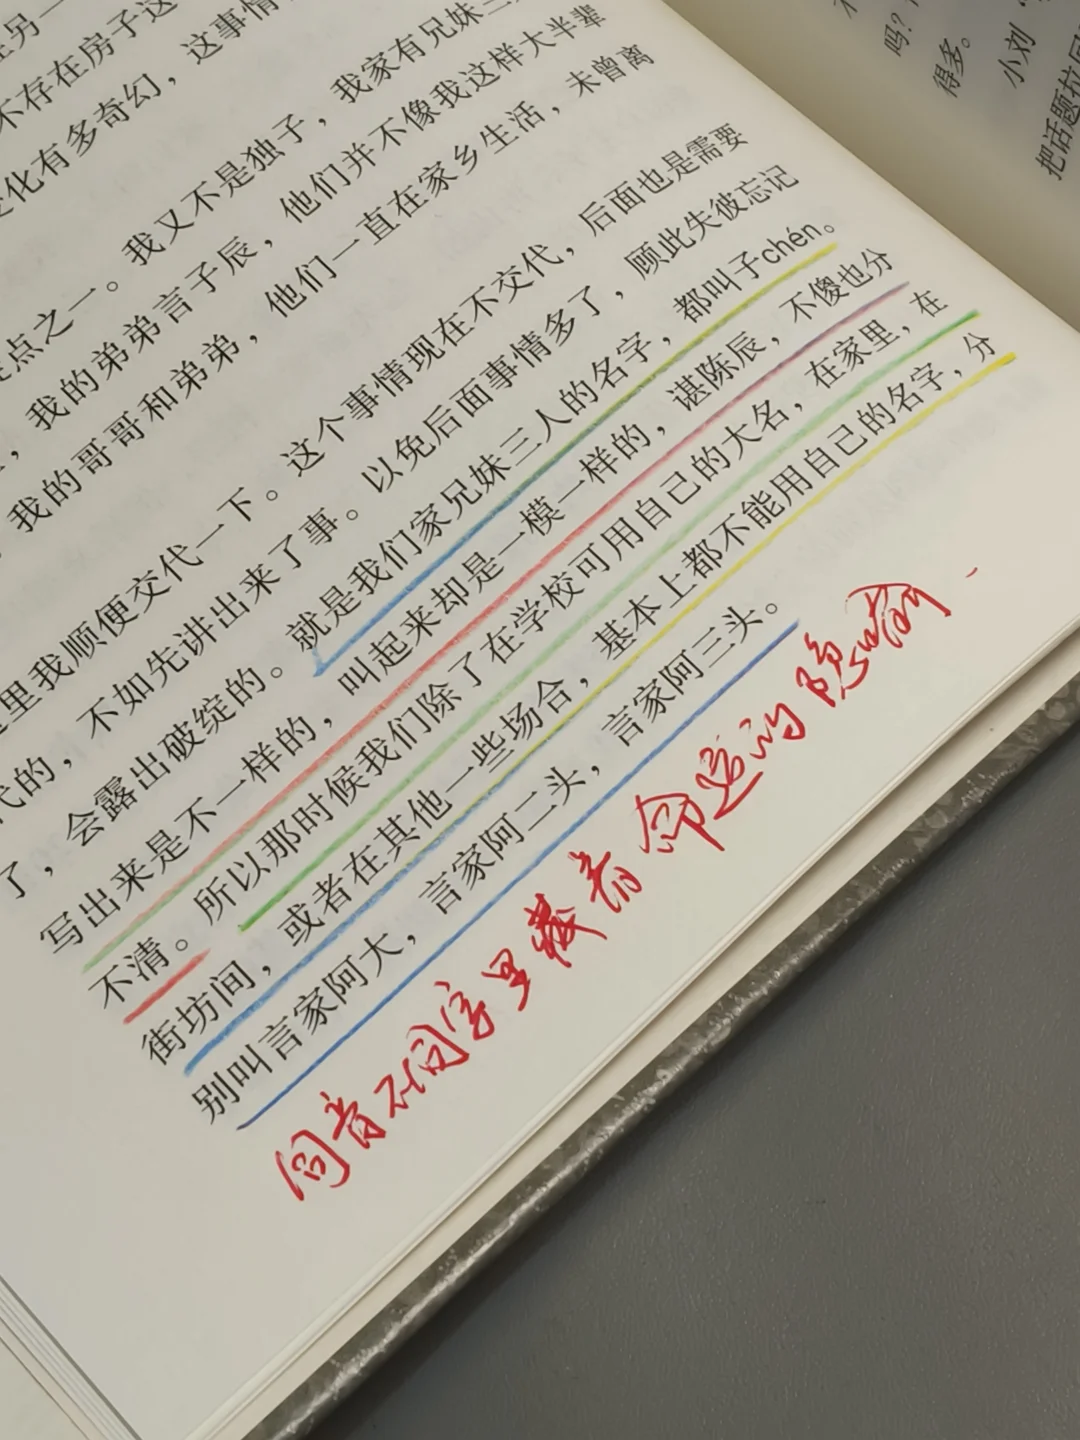 在另一
不存在房子这
变化有多奇幻，这事情
点之一。我又不是独子，我家有兄妹三
，我的弟弟言子辰，他们并不像我这样大半辈
我的哥哥和弟弟，他们一直在家乡生活，未曾离
里我顺便交代一下。这个事情现在不交代，后面也是需要
代的，不如先讲出来了事。以免后面事情多了，顾此失彼忘记
了，会露出破绽的。就是我们家兄妹三人的名字，都叫子chén。
写出来是不一样的，叫起来却是一模一样的，谌陈辰，不傻也分
不清。所以那时候我们除了在学校可用自己的大名，在家里，在
街坊间，或者在其他一些场合，基本上都不能用自己的名字，分
别叫言家阿大，言家阿二头，言家阿三头。
同音不同字里藏着命运的隐喻
吗？
得多。
小刘
把话题拉回